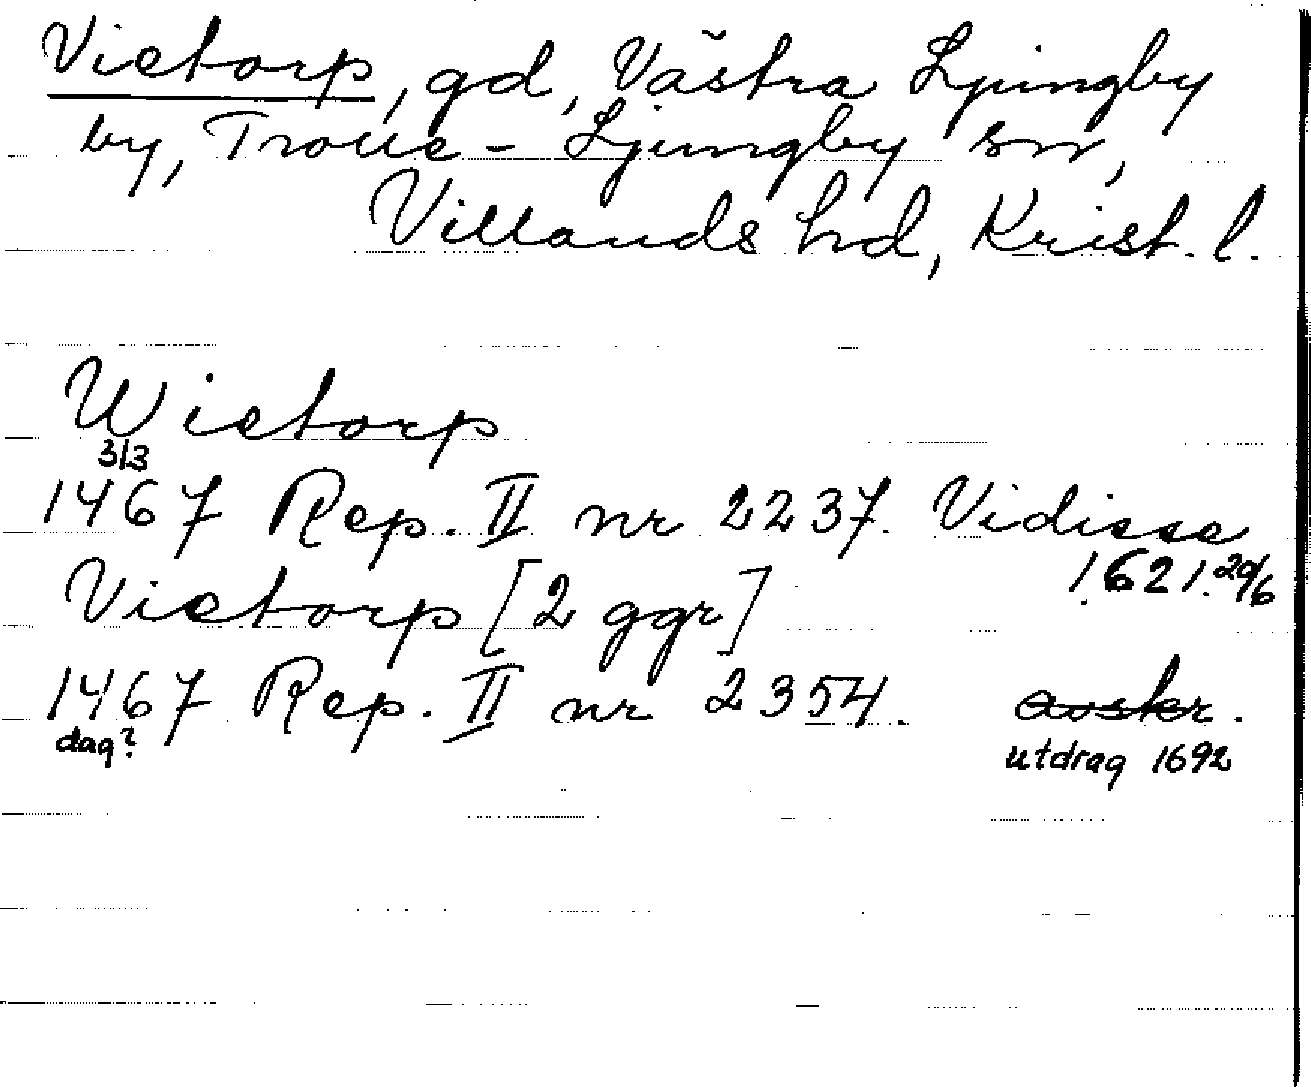 Vietorp, gd, Västra Ljungby
by, Trolle-Ljungby sn,
Villands hd, Krist. l.
Wietorp
3/3
1467 Rep. II nr 2237. Vidisse
1621 20/6
Vietorp [2 ggr]
1467 Rep. II nr 2354. avskr.
dag? utdrag 1692